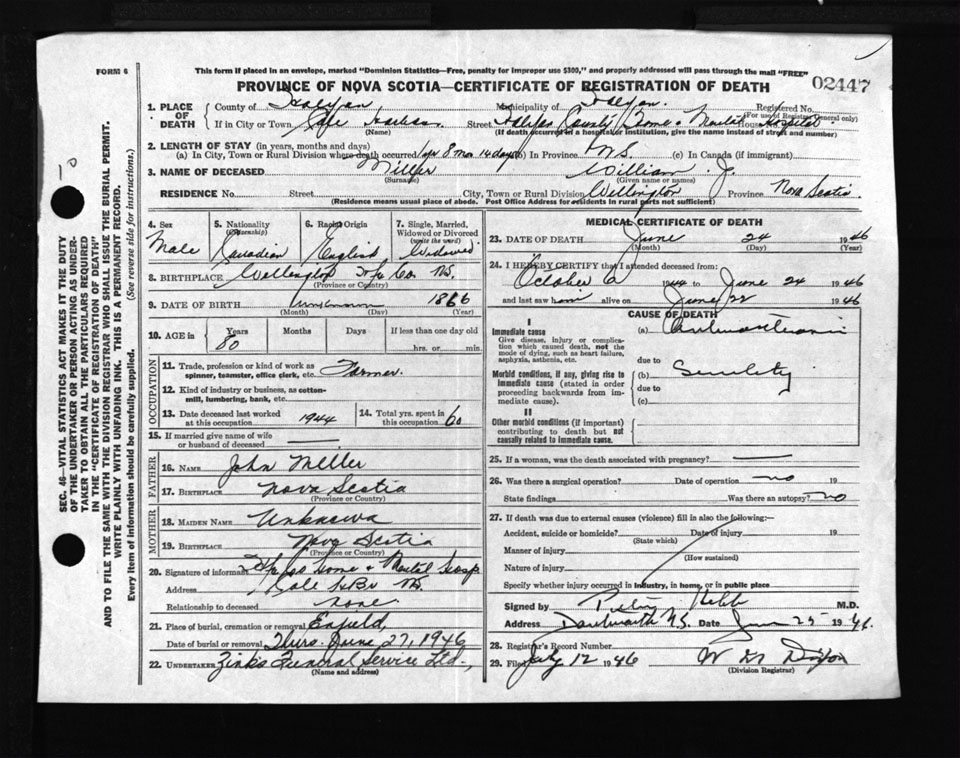 FORM 6
This form if placed in an envelope, marked "Dominion Statistics—Free, penalty for improper use $300," and properly addressed will pass through the mail "FREE"
PROVINCE OF NOVA SCOTIA—CERTIFICATE OF REGISTRATION OF DEATH
02447
SEC. 46—VITAL STATISTICS ACT MAKES IT THE DUTY
OF THE UNDERTAKER OR PERSON ACTING AS UNDER-
TAKER TO OBTAIN ALL THE PARTICULARS REQUIRED
IN THE "CERTIFICATE OF REGISTRATION OF DEATH"
AND TO FILE THE SAME WITH THE DIVISION REGISTRAR WHO SHALL ISSUE THE BURIAL PERMIT.
WRITE PLAINLY WITH UNFADING INK. THIS IS A PERMANENT RECORD.
Every item of information should be carefully supplied. (See reverse side for instructions.)
1. PLACE OF DEATH
County of Halifax Municipality of Halifax Registered No.
(For use of Registrar General only)
If in City or Town Cole Harbour Street Halifax County Home & Mental Hospital House
(Name) (If death occurred in a hospital or institution, give the name instead of street and number)
2. LENGTH OF STAY (in years, months and days)
(a) In City, Town or Rural Division where death occurred 1 yr 8 mo 14 days (b) In Province N.S. (c) In Canada (if immigrant)
3. NAME OF DECEASED Miller William J.
(Surname) (Given name or names)
RESIDENCE No. Street City, Town or Rural Division Wellington Province Nova Scotia
(Residence means place usual of abode. Post Office Address for residents in rural parts not sufficient)
4. Sex Male
5. Nationality (Citizenship) Canadian
6. Racial Origin English
7. Single, Married, Widowed or Divorced (write the word) Widowed
8. BIRTHPLACE Wellington Hfx Co. N.S.
(Province or Country)
9. DATE OF BIRTH unknown 1866
(Month) (Day) (Year)
10. AGE in Years Months Days If less than one day old
80 hrs. or min.
OCCUPATION
11. Trade, profession or kind of work as spinner, teamster, office clerk, etc. Farmer.
12. Kind of industry or business, as cotton-mill, lumbering, bank, etc.
13. Date deceased last worked at this occupation 1944
14. Total yrs. spent in this occupation 60
15. If married give name of wife or husband of deceased
FATHER
16. NAME John Miller
17. BIRTHPLACE Nova Scotia
(Province or Country)
MOTHER
18. MAIDEN NAME Unknown
19. BIRTHPLACE Nova Scotia
(Province or Country)
20. Signature of informant Hfx Co Home & Mental Hosp
Address Cole Hbr N.S.
Relationship to deceased none
21. Place of burial, cremation or removal Enfield,
Date of burial or removal Thurs. June 27, 1946
22. UNDERTAKER Zink's Funeral Service Ltd.,
(Name and address)
MEDICAL CERTIFICATE OF DEATH
23. DATE OF DEATH June 24 1946
(Month) (Day) (Year)
24. I HEREBY CERTIFY that I attended deceased from:
October 6 1944 to June 24 1946
and last saw him alive on June 22 1946
CAUSE OF DEATH
I
Immediate cause (a)
Give disease, injury or complication which caused death, not the mode of dying, such as heart failure, asphyxia, asthenia, etc.
due to
Morbid conditions, if any, giving rise to immediate cause (stated in order proceeding backwards from immediate cause). (b) Senility
due to
(c)
II
Other morbid conditions (if important) contributing to death but not causally related to immediate cause.
25. If a woman, was the death associated with pregnancy? —
26. Was there a surgical operation? Date of operation no 19
State findings Was there an autopsy? no
27. If death was due to external causes (violence) fill in also the following:—
Accident, suicide or homicide? Date of injury 19
(State which)
Manner of injury
(How sustained)
Nature of injury
Specify whether injury occurred in industry, in home, or in public place
Signed by Hebb M.D.
Address Dartmouth N.S. Date June 25 1946.
28. Registrar's Record Number
29. Filed July 12 1946
(Division Registrar)